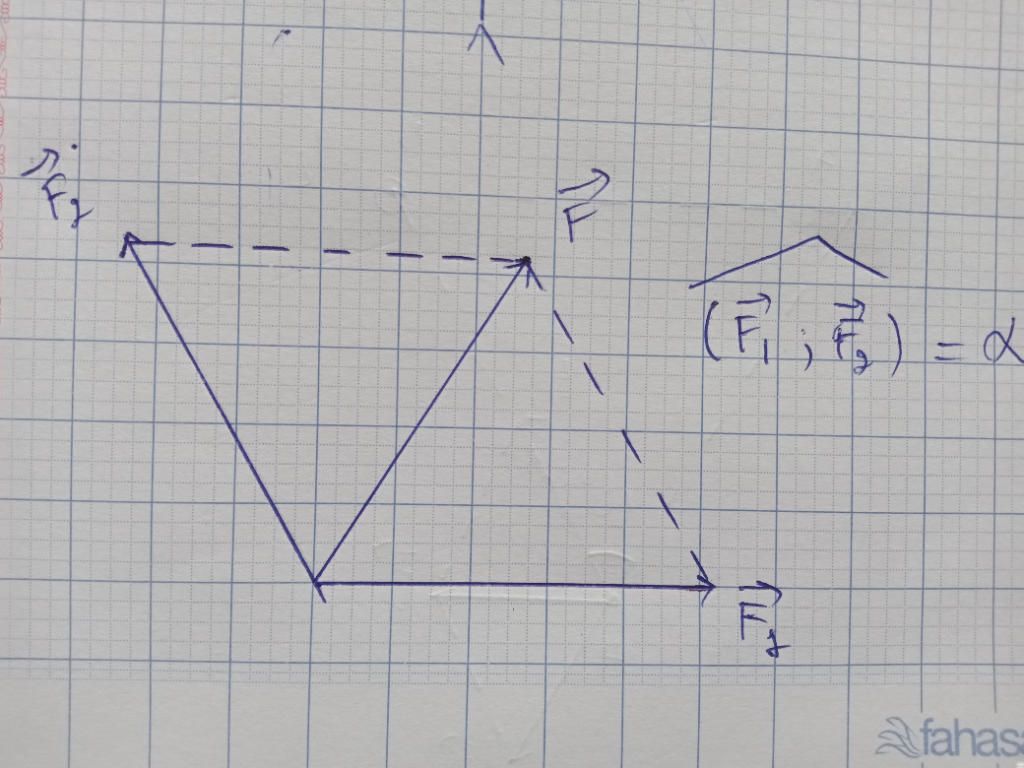 F₂
F
(F₁ ; F₂) = α
F₁
fahasa